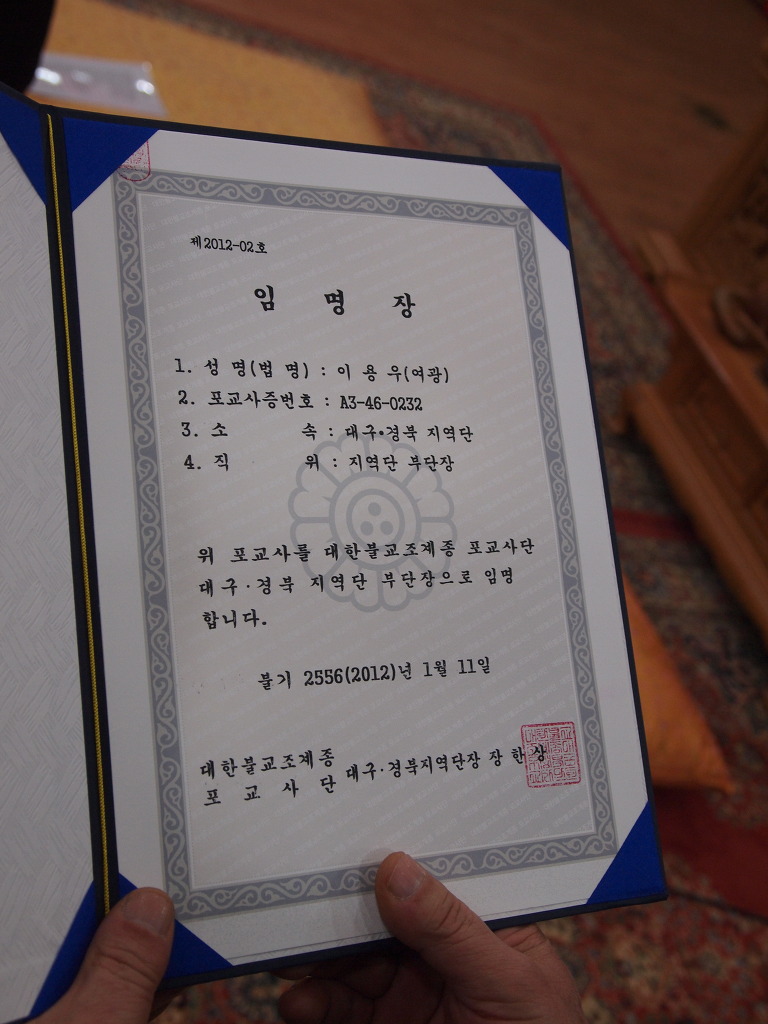 제2012-02호
임 명 장
1. 성 명(법 명) : 이 용 우(여광)
2. 포교사증번호 : A3-46-0232
3. 소 속 : 대구·경북 지역단
4. 직 위 : 지역단 부단장
위 포교사를 대한불교조계종 포교사단
대구·경북 지역단 부단장으로 임명
합니다.
불기 2556(2012)년 1월 11일
대한불교조계종
포 교 사 단 대구·경북지역단장 장 한 상